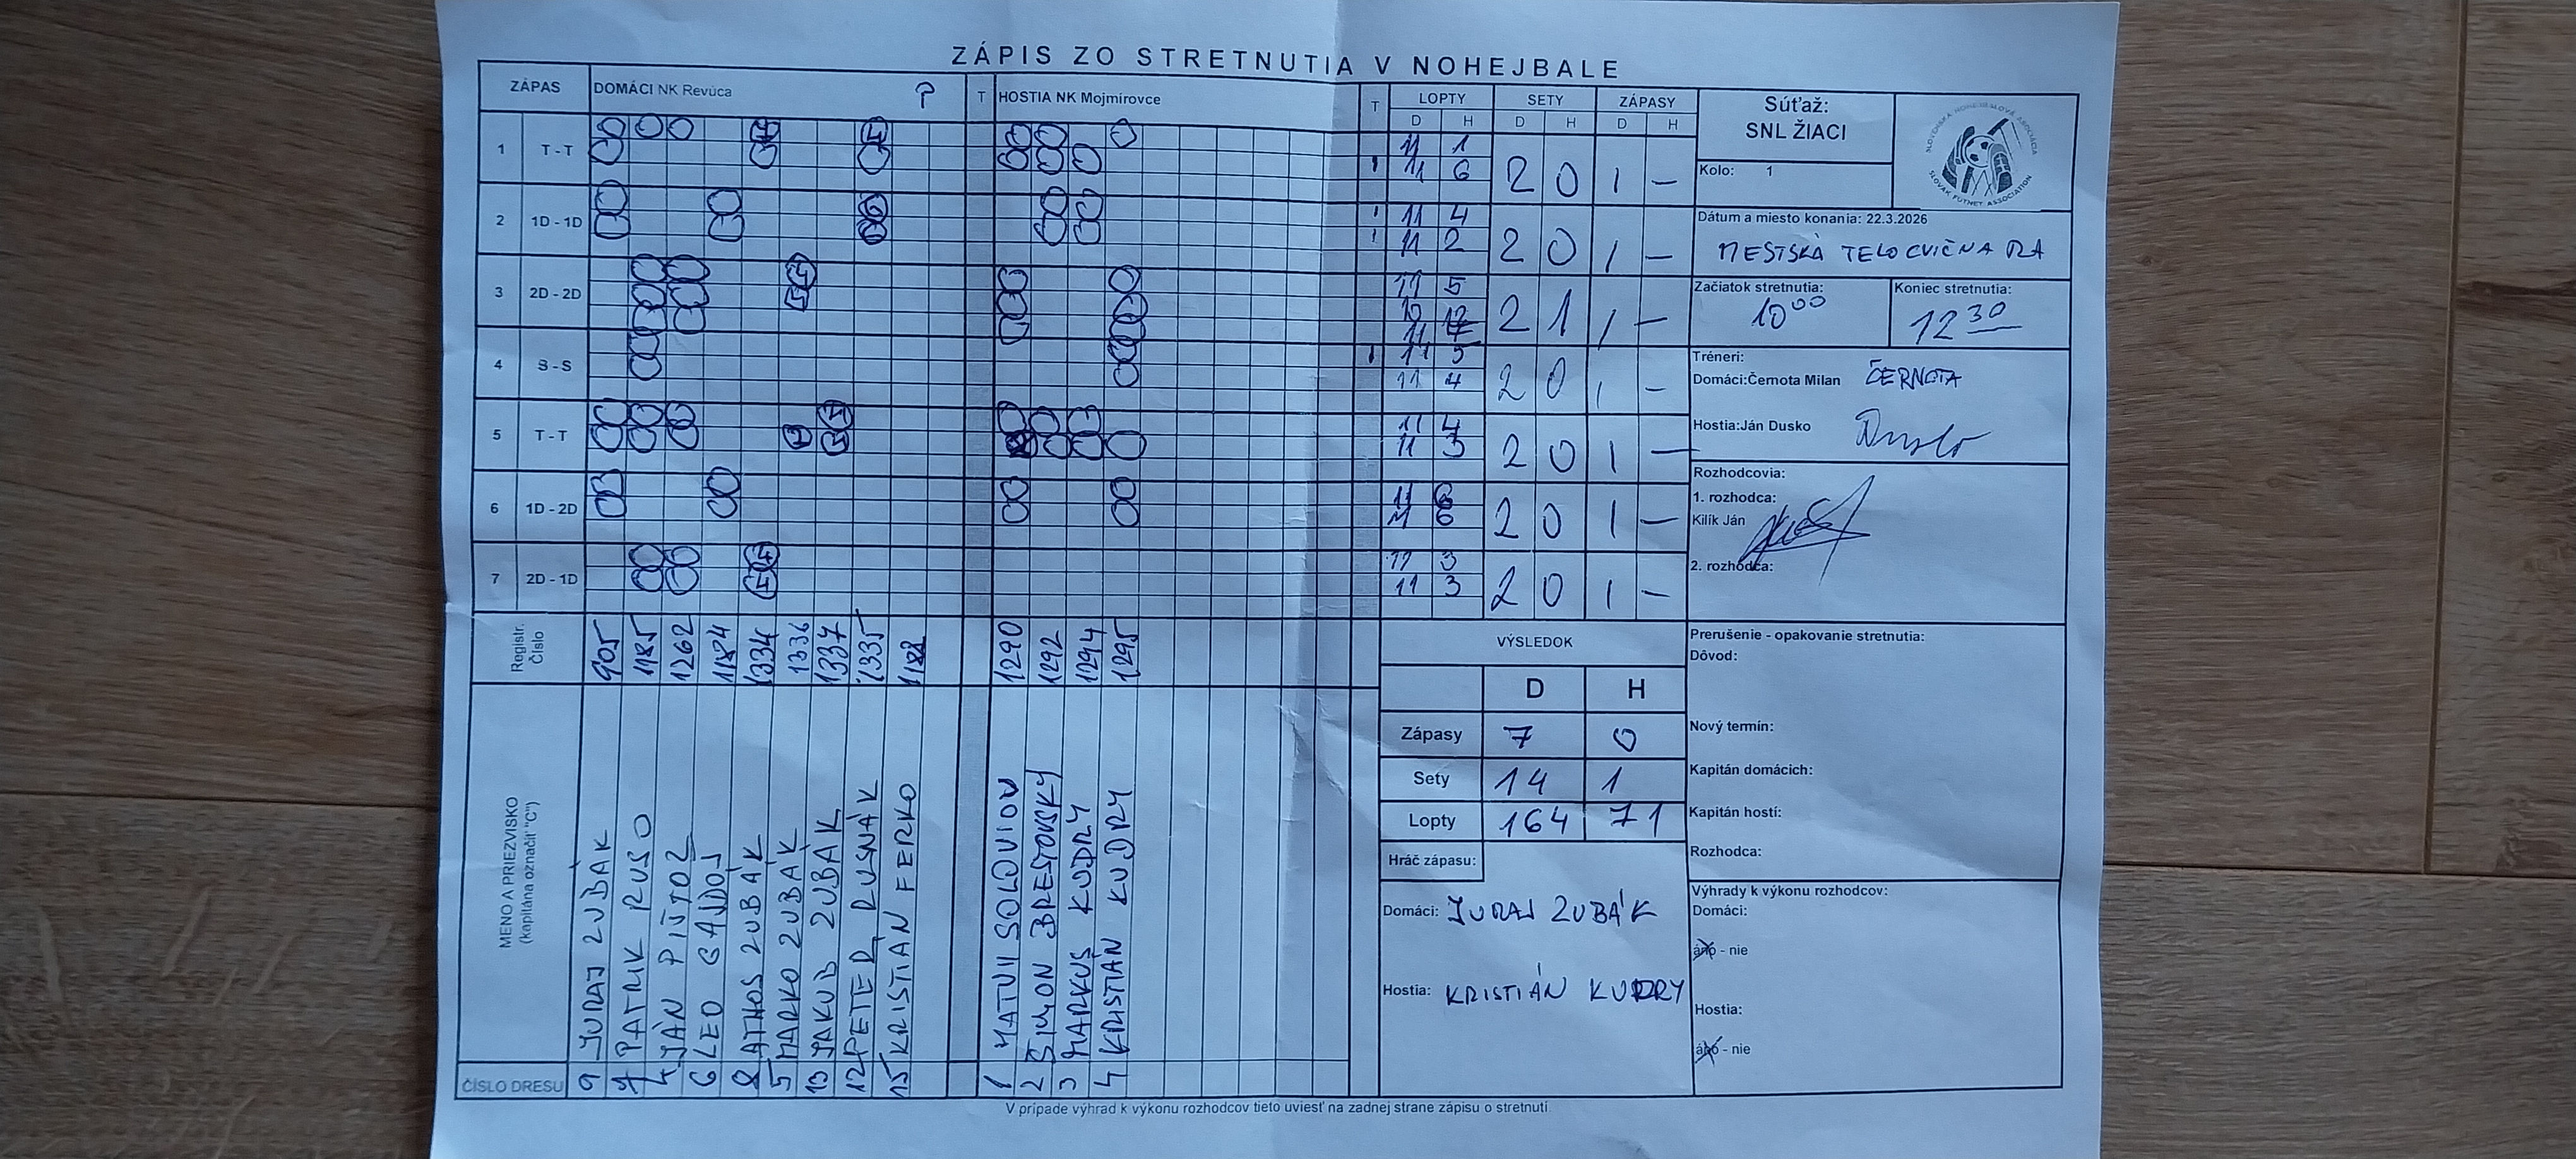 ZÁPIS ZO STRETNUTIA V NOHEJBALE
ZÁPAS DOMÁCI NK Revúca P T HOSTIA NK Mojmírovce T LOPTY SETY ZÁPASY
D H D H D H
1 T - T 11 1
11 6 2 0 1 –
2 1D - 1D 11 4
11 2 2 0 1 –
3 2D - 2D 11 5
10 12
11 2 1 1 –
4 S - S 11 5
11 4 2 0 1 –
5 T - T 11 4
11 3 2 0 1 –
6 1D - 2D 11 6
11 6 2 0 1 –
7 2D - 1D 11 3
11 3 2 0 1 –
Registr. Číslo 905 1185 1262 1184 1334 1336 1337 1335 1290 1292 1294 1295
MENO A PRIEZVISKO
(kapitána označiť "C")
ČÍSLO DRESU
9 JURAJ ZUBÁK
7 PATRIK RUSO
4 JÁN
6 LEO GAJDOŠ
8 ATHOS ZUBÁK
5 MARKO ZUBÁK
13 JAKUB ZUBÁK
12 PETER RUSNÁK
15 KRISTIAN FERKO
1 MATVII SOLOVIOV
2 ŠIMON BRESTOVSKÝ
3 MARKUS KUDRY
4 KRISTIÁN KUDRY
Súťaž:
SNL ŽIACI
SLOVENSKÁ NOHEJBALOVÁ ASOCIÁCIA
SLOVAK FUTNET ASSOCIATION
Kolo: 1
Dátum a miesto konania: 22.3.2026
MESTSKÁ TELOCVIČNA RA
Začiatok stretnutia: Koniec stretnutia:
10 00 12 30
Tréneri:
Domáci:Černota Milan ČERNOTA
Hostia:Ján Dusko Dusko
Rozhodcovia:
1. rozhodca:
Kilík Ján
2. rozhodca:
VÝSLEDOK
D H
Zápasy 7 0
Sety 14 1
Lopty 164 71
Hráč zápasu:
Domáci: JURAJ ZUBÁK
Hostia: KRISTIÁN KUDRY
Prerušenie - opakovanie stretnutia:
Dôvod:
Nový termín:
Kapitán domácich:
Kapitán hostí:
Rozhodca:
Výhrady k výkonu rozhodcov:
Domáci:
áno - nie
Hostia:
áno - nie
V prípade výhrad k výkonu rozhodcov tieto uviesť na zadnej strane zápisu o stretnutí.